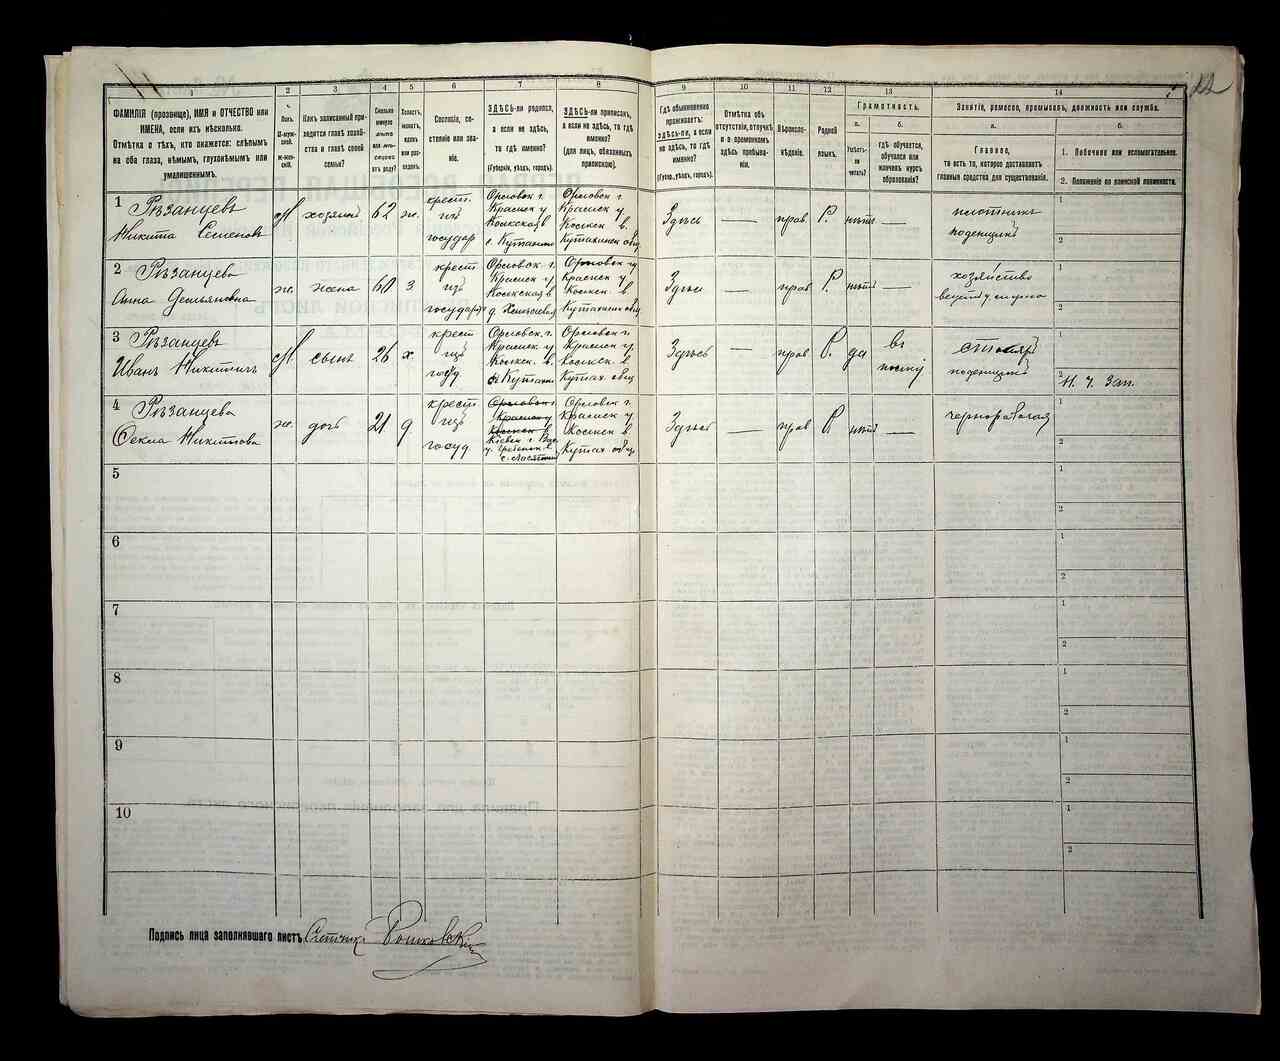 1
ФАМИЛІЯ (прозвище), ИМЯ и ОТЧЕСТВО или
ИМЕНА, если ихъ нѣсколько.
Отмѣтка о тѣхъ, кто окажется: слѣпымъ
на оба глаза, нѣмымъ, глухонѣмымъ или
умалишеннымъ.
2
Полъ.
М-муж-
ской.
Ж-жен-
скій.
3
Какъ записанный при-
ходится главѣ хозяй-
ства и главѣ своей
семьи?
4
Сколько
минуло
лѣтъ
или мѣ-
сяцевъ
отъ роду?
5
Холостъ,
женатъ,
вдовъ
или раз-
веденъ.
6
Сословіе, со-
стояніе или зва-
ніе.
7
ЗДѢСЬ-ли родился,
а если не здѣсь,
то гдѣ именно?
(Губернія, уѣздъ, городъ).
8
ЗДѢСЬ-ли приписанъ,
а если не здѣсь, то гдѣ
именно?
(для лицъ, обязанныхъ
припискою).
9
Гдѣ обыкновенно
проживаетъ:
здѣсь-ли, а если
не здѣсь, то гдѣ
именно?
(Губер., уѣздъ, городъ).
10
Отмѣтка объ
отсутствіи, отлучкѣ
и о временномъ
здѣсь пребыва-
ніи.
11
Вѣроиспо-
вѣданіе.
12
Родной
языкъ.
13
Грамотность.
а.
Умѣетъ-
ли
читать?
б.
гдѣ обучается,
обучался или
кончилъ курсъ
образованія?
14
Занятіе, ремесло, промыселъ, должность или служба.
а.
Главное,
то есть то, которое доставляетъ
главныя средства для существованія.
б.
1. Побочное или вспомогательное.
2. Положеніе по воинской повинности.
1
Рѣзанцевъ
Никита Семеновъ
М
хозяинъ
62
ж.
крест.
изъ
государ
Орловск г.
Красинск у
Косинск в
с. Кутанно
Орловск г.
Красинск у
Косинск в.
Кутахинск общ
Здѣсь
—
прав.
Р.
нѣтъ
—
плотникъ
поденщикъ
1
2
2
Рѣзанцева
Анна Демьяновна
ж.
жена
60
з
крест
изъ
государ
Орловск г.
Красинск у
Косинск в
Орловск г
Красинск у
Косинск в
Кутахинск общ
Здѣсь
—
прав
Р.
нѣтъ
—
хозяйство
1
2
3
Рѣзанцевъ
Иванъ Никитичъ
М
сынъ
26
х.
крест
изъ
госуд
Орловск г.
Красинск у
Косинск. в.
Кутанн
Орловск г.
Красинск у
Косинск. в
Кутах общ
Здѣсь
—
прав
Р.
да
въ
полку
столяръ
поденщикъ
1
2
Н. Ч. Зап.
4
Рѣзанцева
Фекла Никитова
ж.
дочь
21
д
крест
изъ
госуд
Орловск г
Красинск у
Косинск в
Кіевск г
Орловск г.
Красинск у
Косинск в
Кутах общ
Здѣсь
—
прав
Р
нѣтъ
—
чернорабочая
1
2
5
1
2
6
1
2
7
1
2
8
1
2
9
1
2
10
1
2
Подпись лица заполнявшаго листъ Счетчикъ Рошковскій